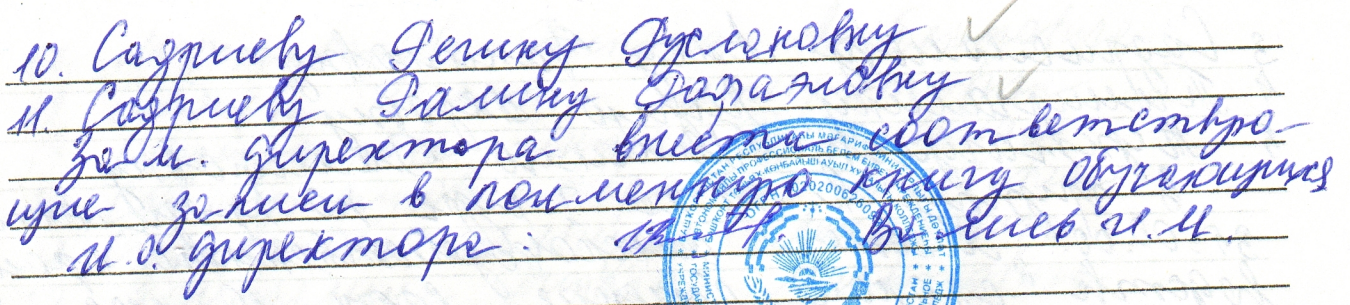 10. Садриеву Регину Руслановну
11. Садриеву Ралину Рафаэловну
Зам. директора внести соответствую-
щие записи в поименную книгу обучающихся
И.о. директора: Валиев И.М.